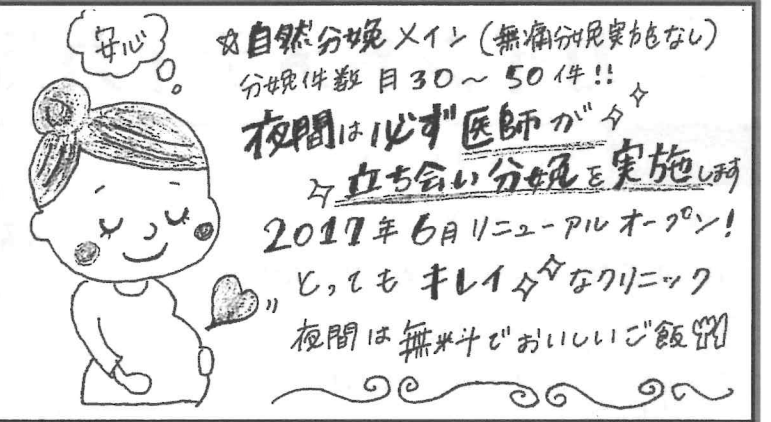 安心
☆自然分娩メイン(無痛分娩実施なし)
分娩件数 月30～50件!!
夜間は必ず医師が
立ち会い分娩を実施します
2017年6月リニューアルオープン!
とってもキレイなクリニック
夜間は無料でおいしいご飯